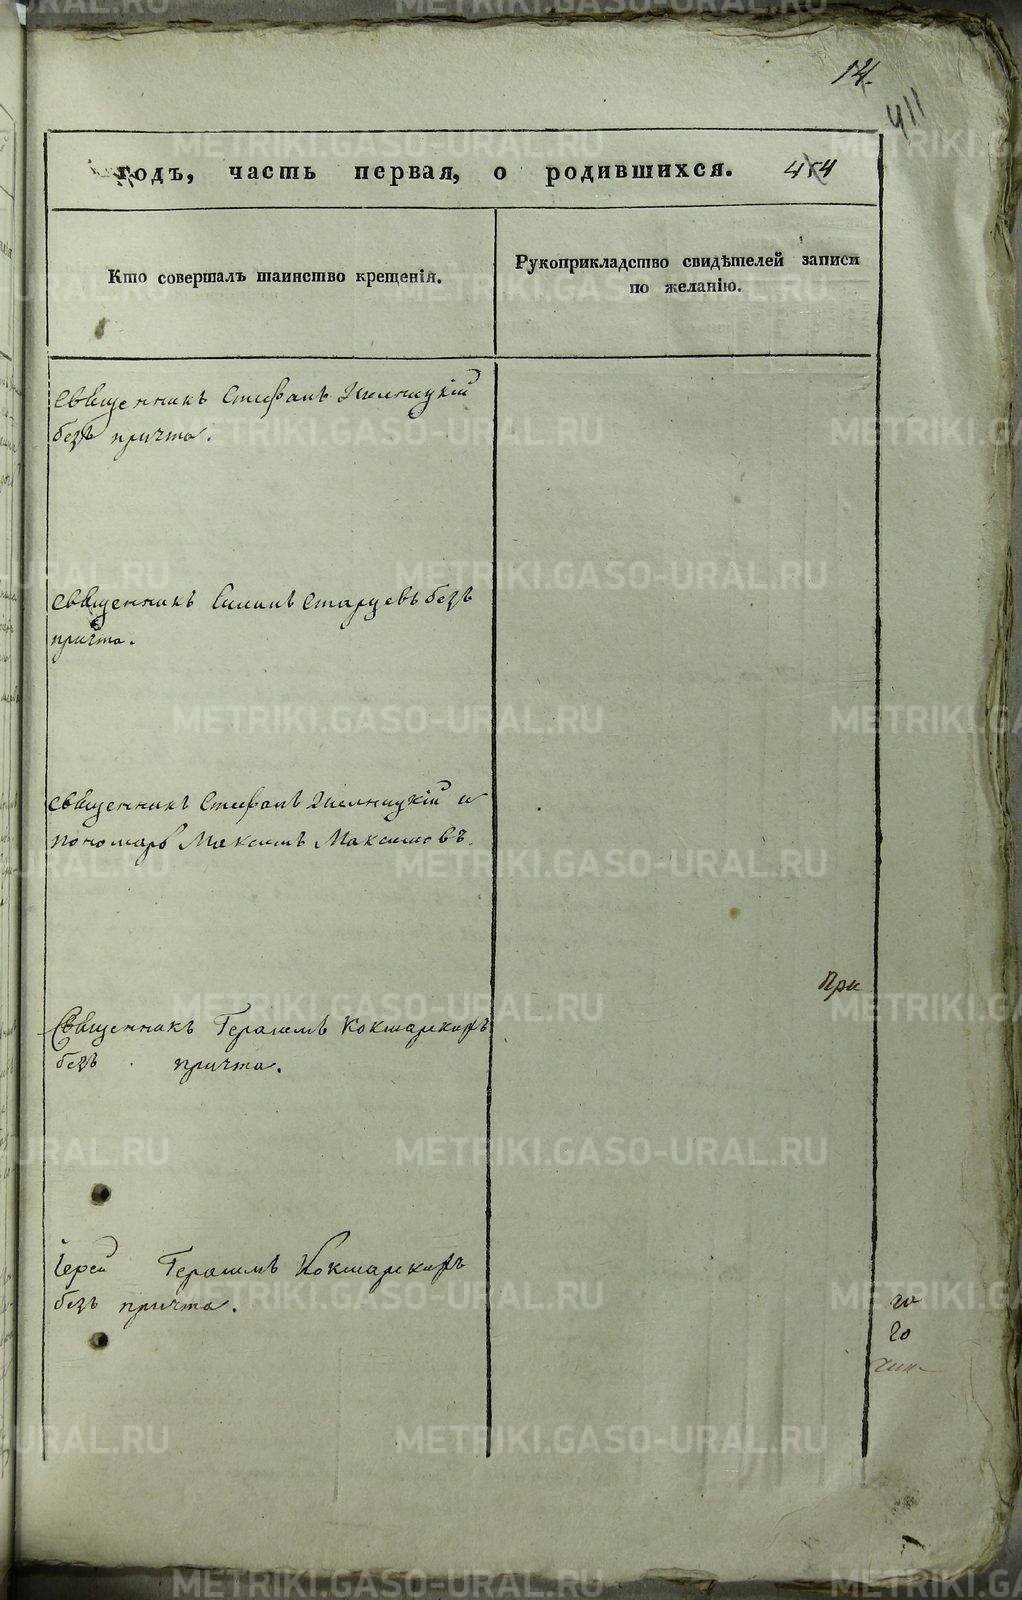 14.
411
годъ, часть первая, о родившихся. 414
Кто совершалъ таинство крещенія.
Рукоприкладство свидѣтелей записи
по желанію.
Священникъ Стефанъ
безъ причта.
Священникъ Симонъ Старцевъ безъ
причта.
Священникъ Стефанъ и
пономарь Максимъ Максимовъ.
При
Священникъ Герасимъ Кокшарскихъ
безъ причта.
Іерей Герасимъ Кокшарскихъ
безъ причта.
го
го
METRIKI.GASO-URAL.RU